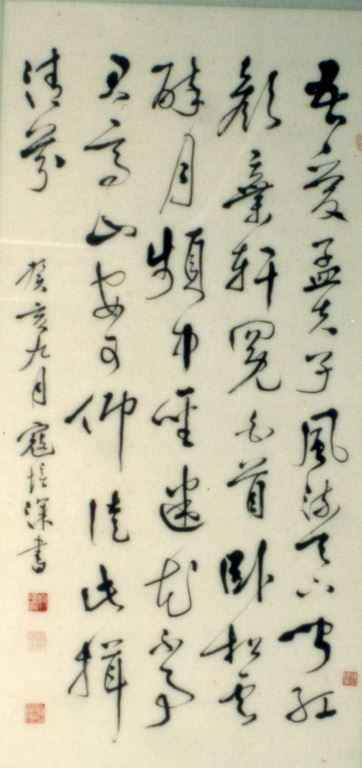 吾愛孟夫子風流天下聞紅
顏棄軒冕白首臥松雲
醉月頻中聖迷花不事
君高山安可仰徒此揖
清芬
癸亥九月寇培深書